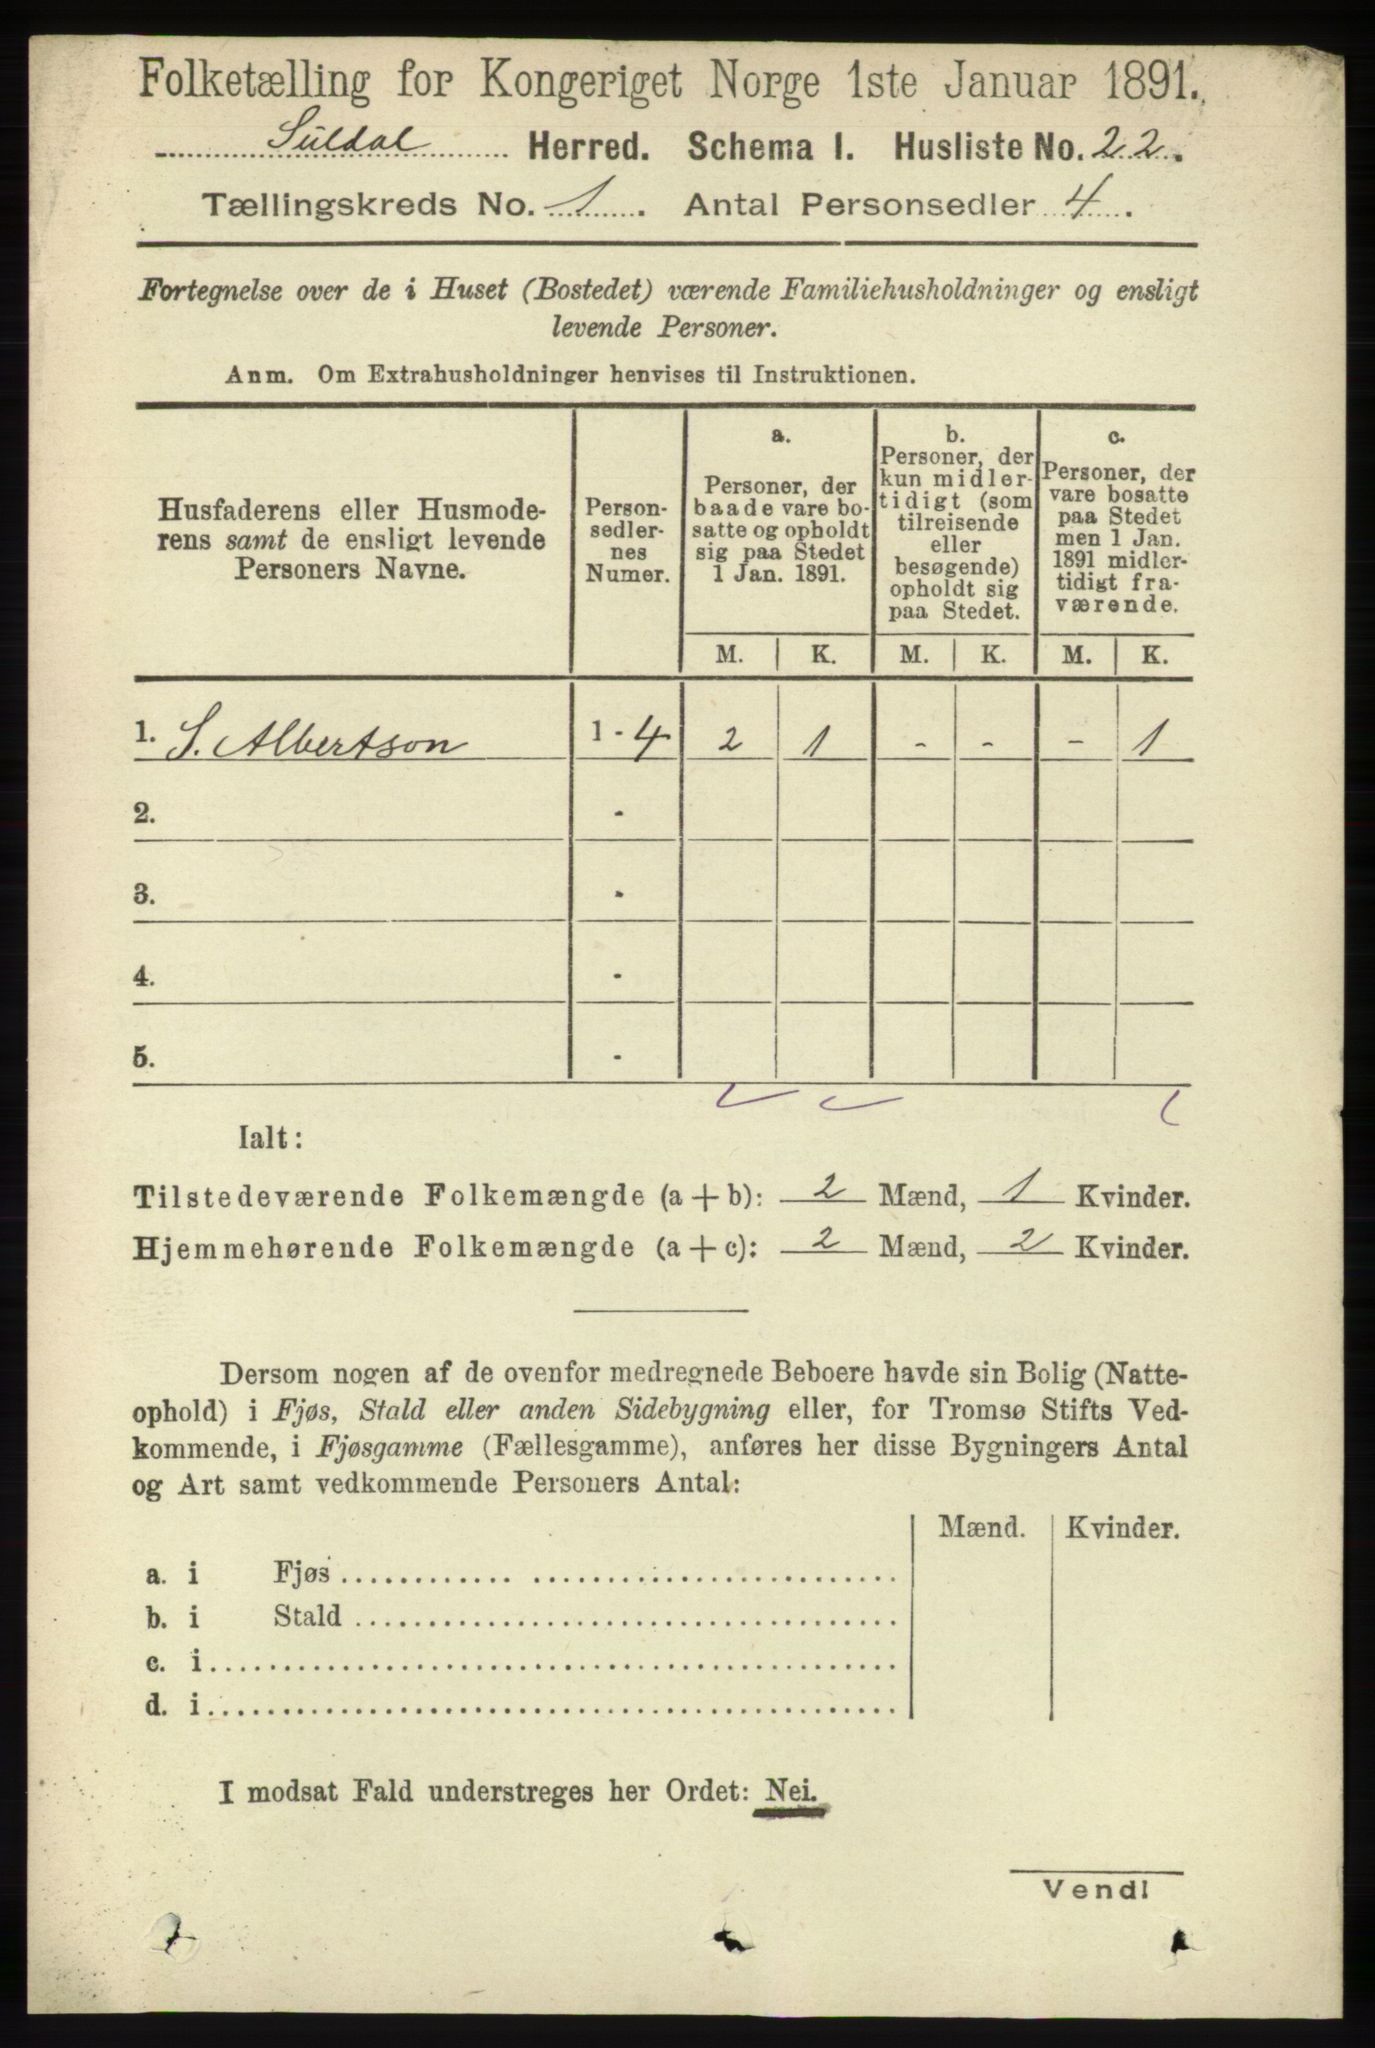 Folketælling for Kongeriget Norge 1ste Januar 1891.
Suldal Herred. Schema I. Husliste No. 22.
Tællingskreds No. 1. Antal Personsedler 4.
Fortegnelse over de i Huset (Bostedet) værende Familiehusholdninger og ensligt
levende Personer.
Anm. Om Extrahusholdninger henvises til Instruktionen.
Husfaderens eller Husmode-
rens samt de ensligt levende
Personers Navne.
Person-
sedler-
nes
Numer.
a.
Personer, der
baade vare bo-
satte og opholdt
sig paa Stedet
1 Jan. 1891.
b.
Personer, der
kun midler-
tidigt (som
tilreisende
eller
besøgende)
opholdt sig
paa Stedet.
c.
Personer, der
vare bosatte
paa Stedet
men 1 Jan.
1891 midler-
tidigt fra-
værende.
M. K. M. K. M. K.
1. S. Albertson 1 - 4 2 1 - - - 1
2. -
3. -
4. -
5. -
Ialt:
Tilstedeværende Folkemængde (a + b): 2 Mænd, 1 Kvinder.
Hjemmehørende Folkemængde (a + c): 2 Mænd, 2 Kvinder.
Dersom nogen af de ovenfor medregnede Beboere havde sin Bolig (Natte-
ophold) i Fjøs, Stald eller anden Sidebygning eller, for Tromsø Stifts Ved-
kommende, i Fjøsgamme (Fællesgamme), anføres her disse Bygningers Antal
og Art samt vedkommende Personers Antal:
Mænd. Kvinder.
a. i Fjøs
b. i Stald
c. i
d. i
I modsat Fald understreges her Ordet: Nei.
Vend!